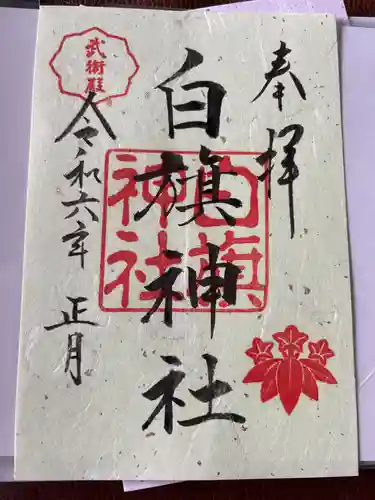 奉拝
白旗神社
白旗
神社
武術殿
令和六年 正月